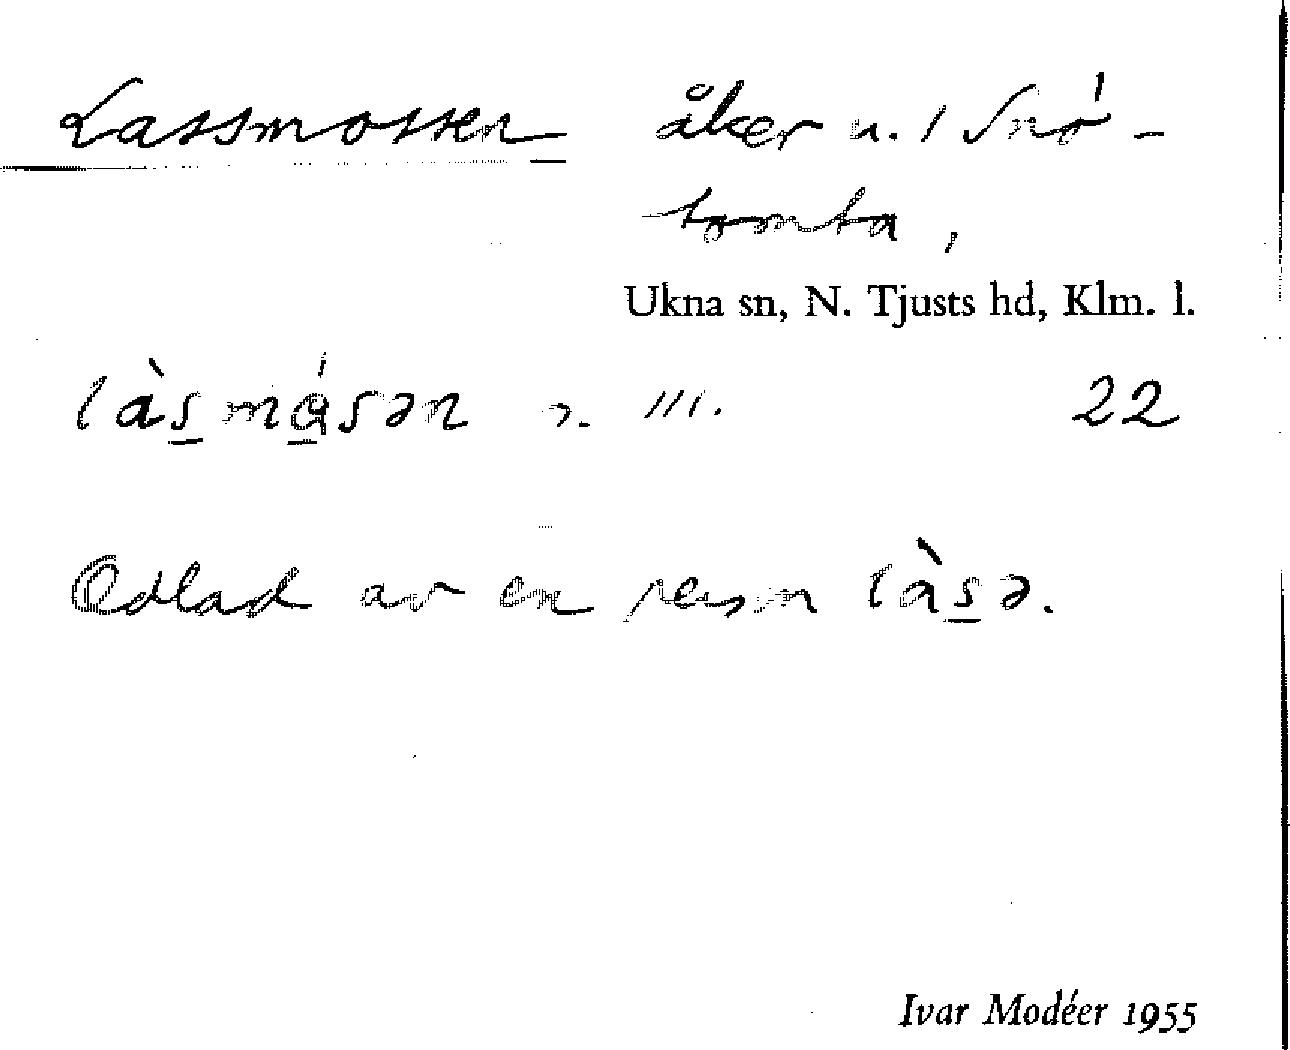 Lassmossen åker u. / Snó-
tomta,
Ukna sn, N. Tjusts hd, Klm. l.
làs̲mɑ̲́sən 22
Odlad av en person làs̲ə.
Ivar Modéer 1955